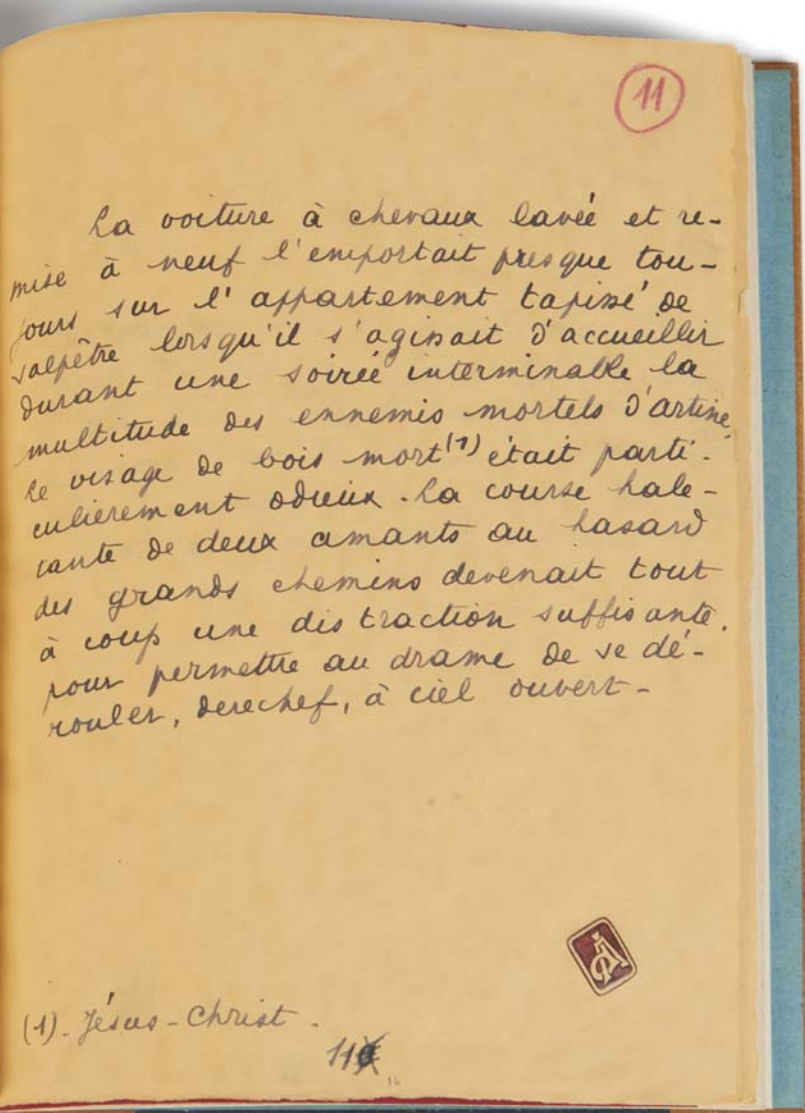 11
La voiture à chevaux lavée et re-
mise à neuf l'emportait presque tou-
jours sur l'appartement tapissé de
salpêtre lorsqu'il s'agissait d'accueillir
durant une soirée interminable la
multitude des ennemis mortels d'artine.
Le visage de bois mort (1) était parti-
culièrement odieux. La course hale-
tante de deux amants au hasard
des grands chemins devenait tout
à coup une distraction suffisante.
pour permettre au drame de se dé-
rouler, derechef, à ciel ouvert-
(1). Jésus-Christ.
11
16